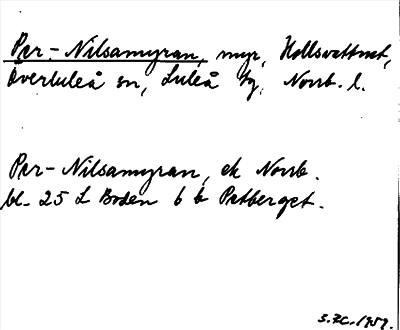 Per-Nilsamyran, myr, Hollsvattnet,
Överluleå sn, Luleå tg, Norrb. l.
Per-Nilsamyran, ek Norrb.
bl. 25 L Boden 6 b Patberget.
1959.